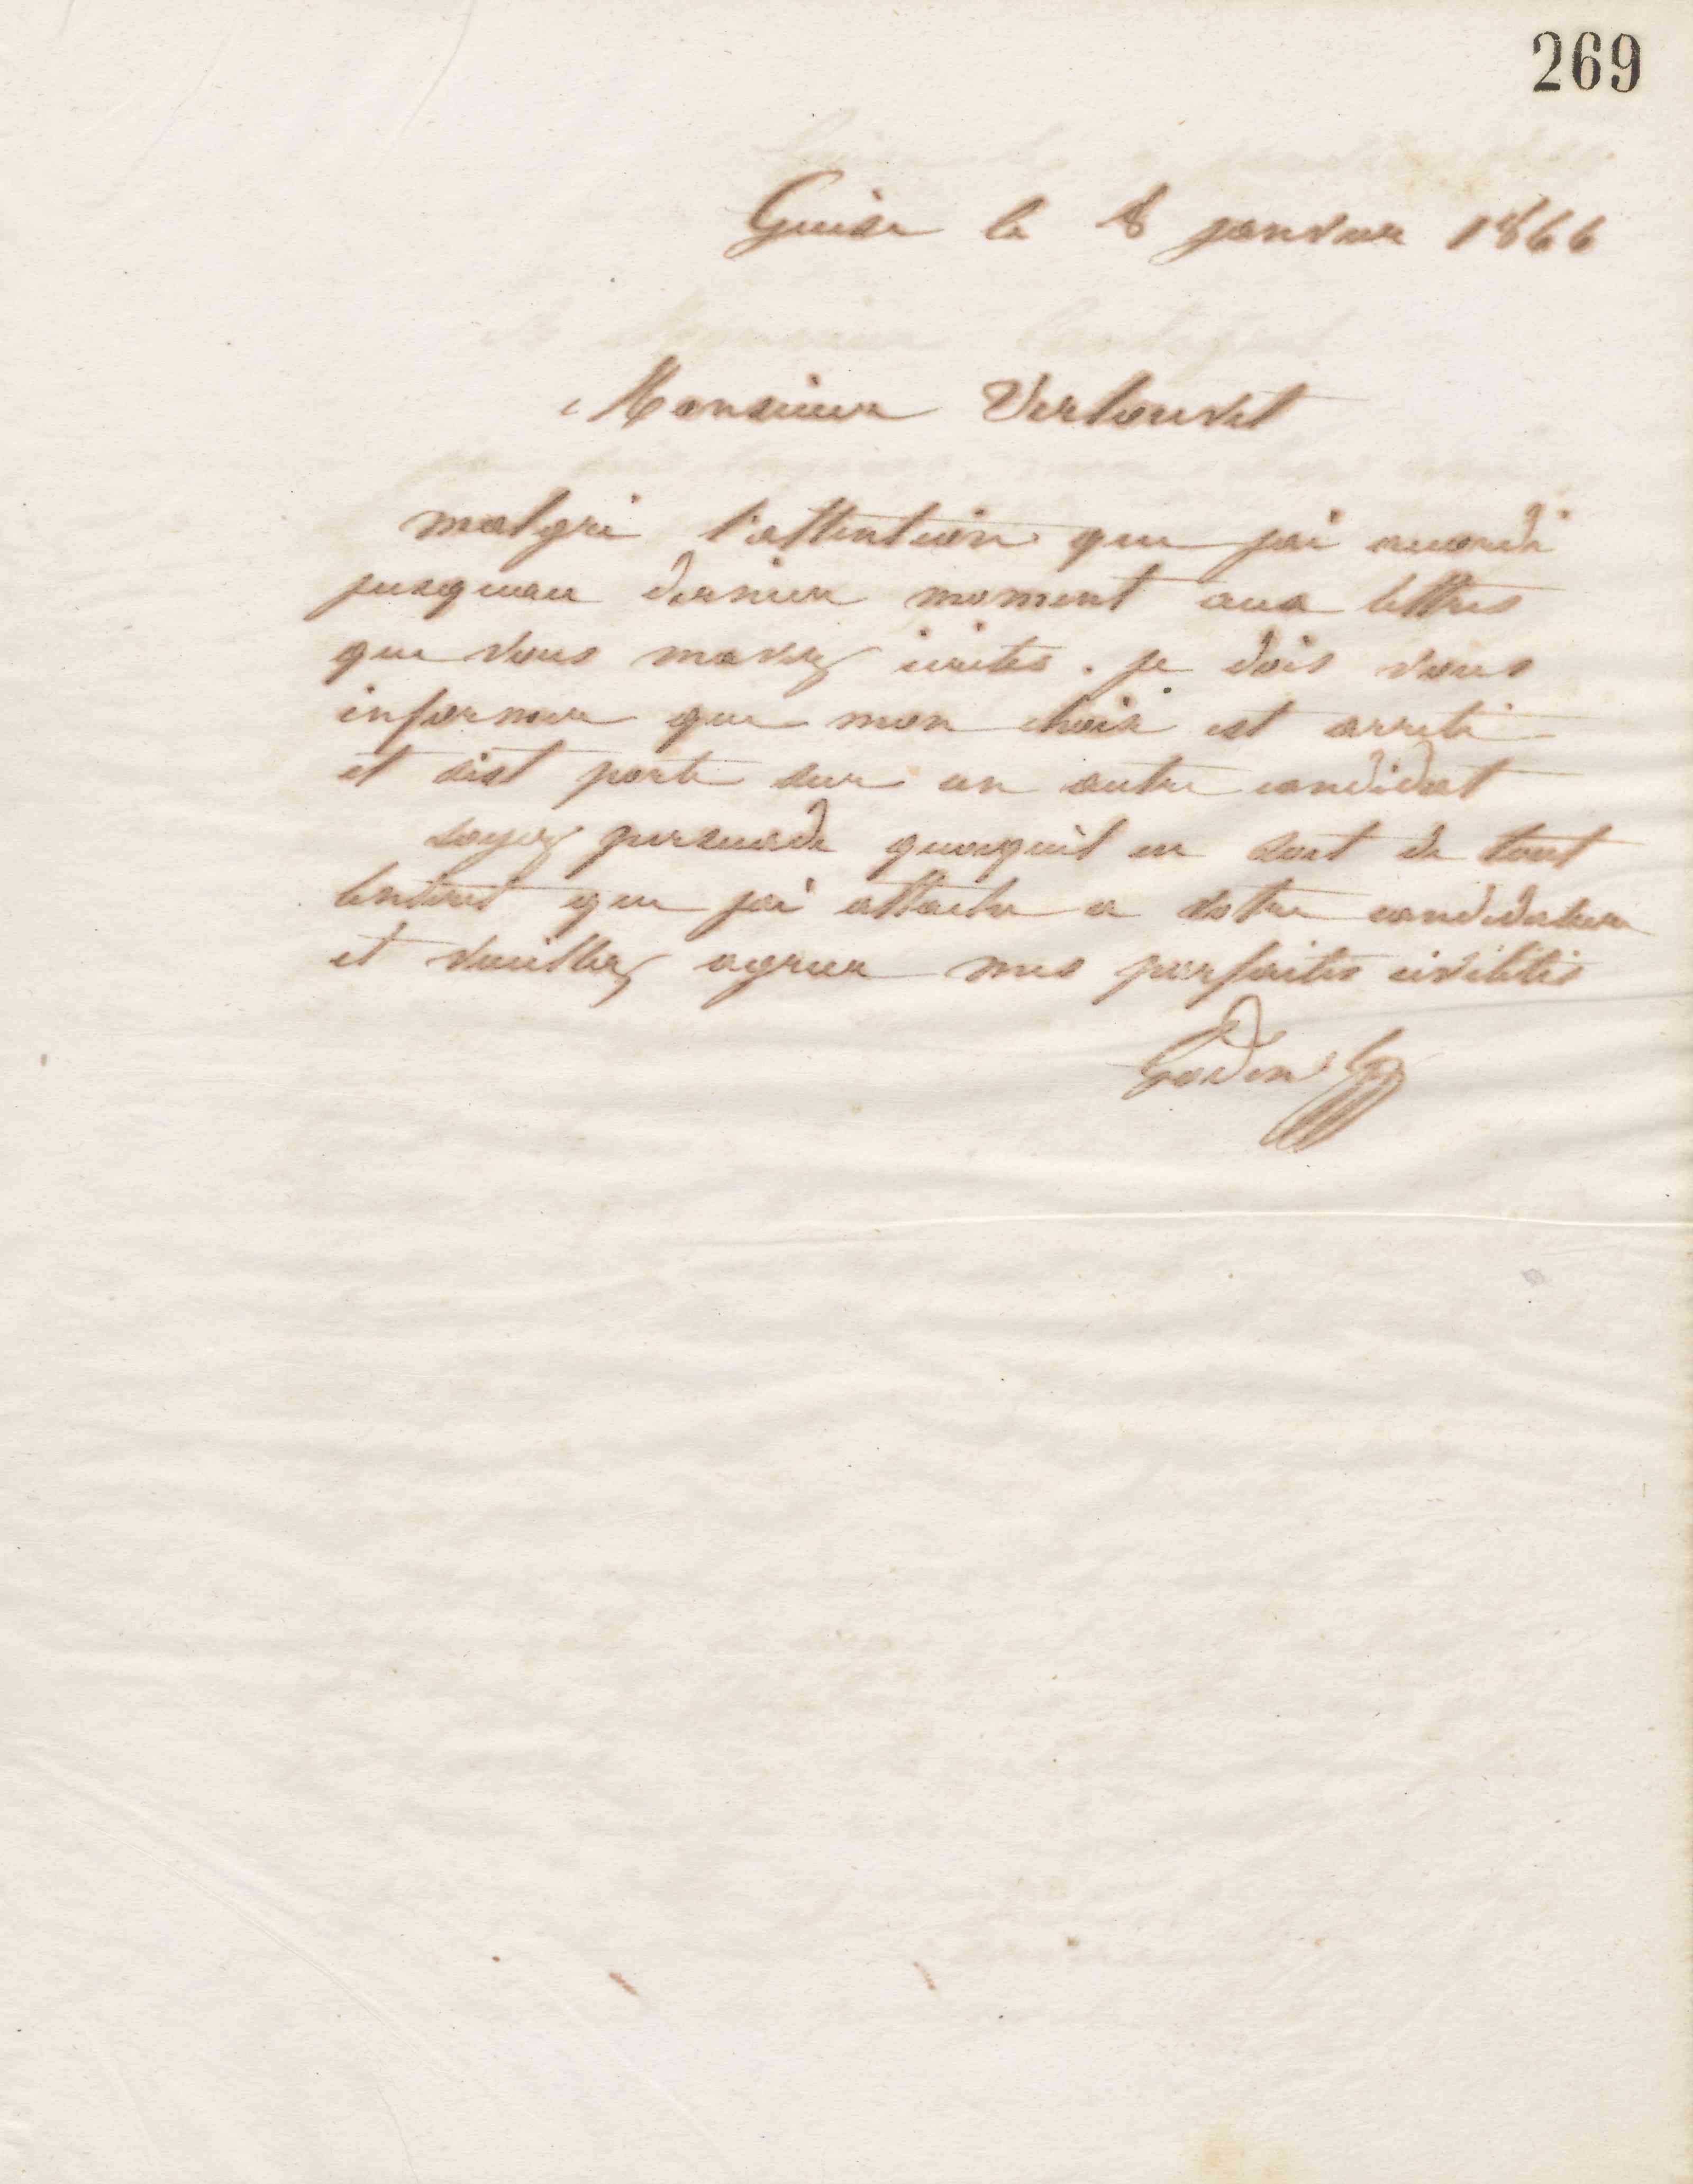 269
Guise le 8 janvier 1866
Monsieur Vertouvet
malgré l'attention que jai accordé
jusquau dernier moment aux lettres
que vous mavez écrites. je dois vous
informer que mon choix est arrêté
et sest porté sur un autre candidat
soyez persuadé quoiquil en soit de tout
lintéret que jai attaché a votre candidature
et veuillez agréer mes parfaites civilités
Godin